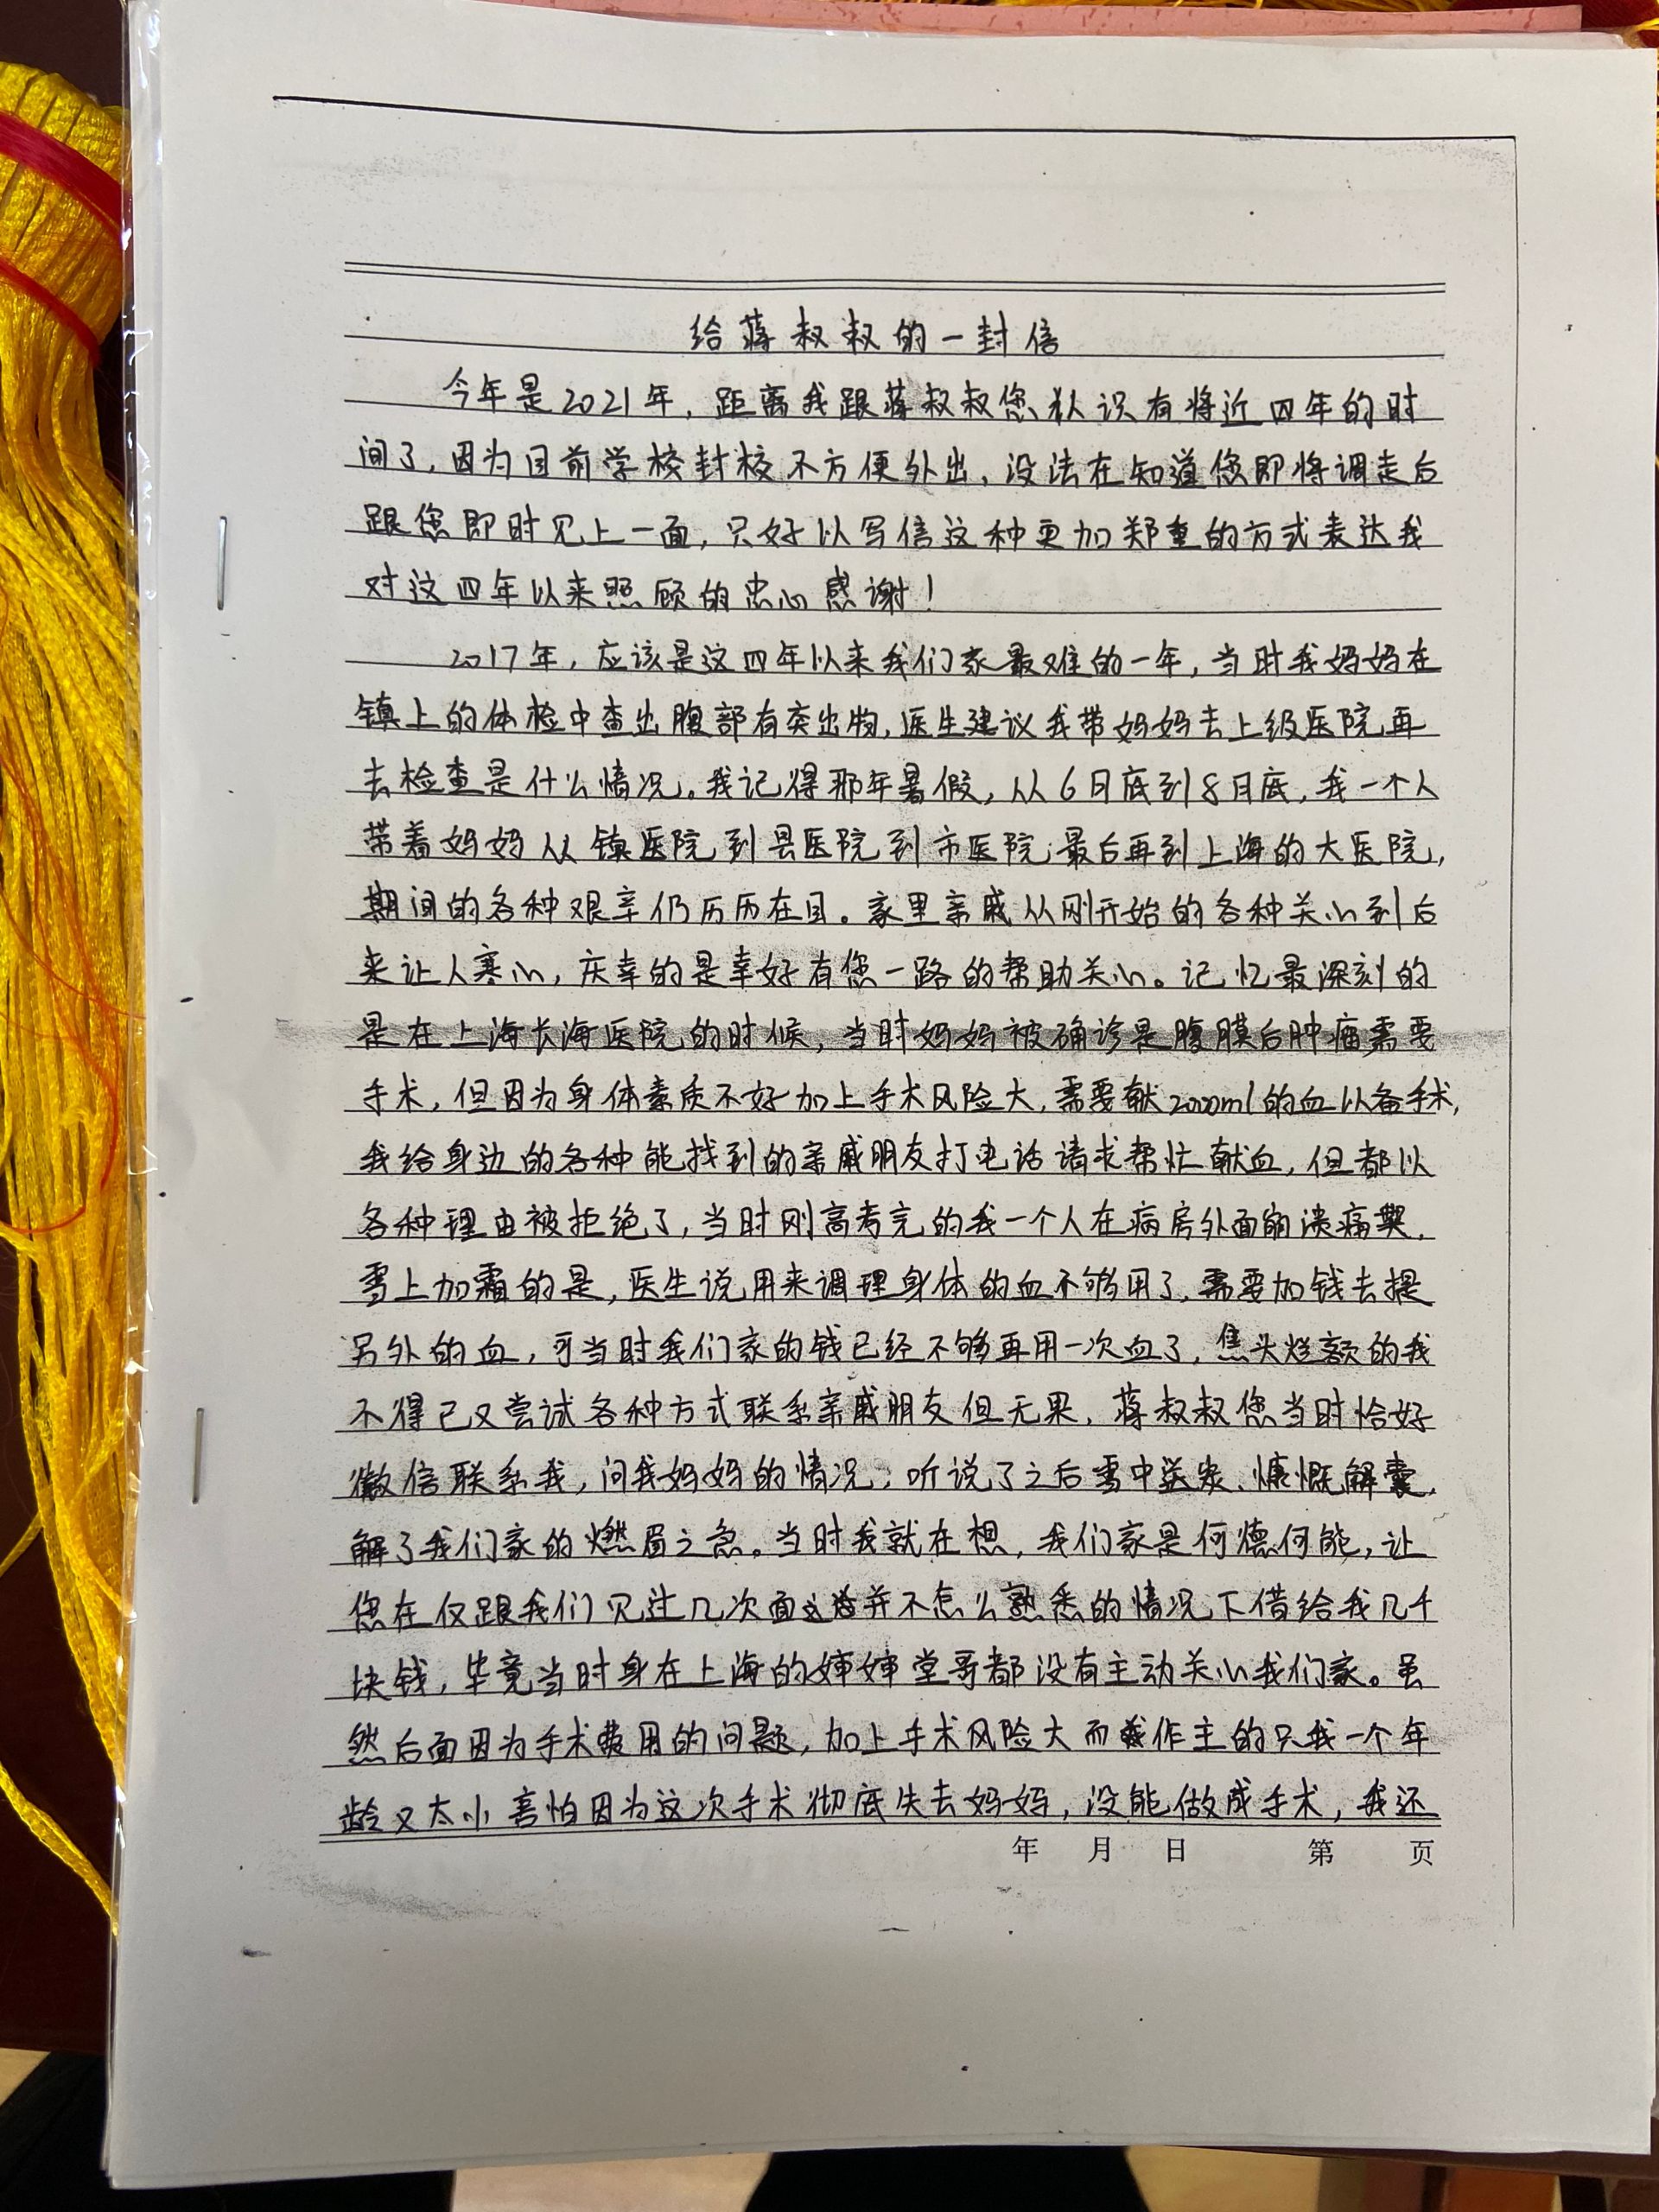 给蒋叔叔的一封信
今年是2021年，距离我跟蒋叔叔您认识有将近四年的时
间了，因为目前学校封校不方便外出，没法在知道您即将调走后
跟您即时见上一面，只好以写信这种更加郑重的方式表达我
对这四年以来照顾的忠心感谢！
2017年，应该是这四年以来我们家最难的一年，当时我妈妈在
镇上的体检中查出腹部有突出物，医生建议我带妈妈去上级医院再
去检查是什么情况。我记得那年暑假，从6月底到8月底，我一个人
带着妈妈从镇医院到县医院到市医院最后再到上海的大医院，
期间的各种艰辛仍历历在目。家里亲戚从刚开始的各种关心到后
来让人寒心，庆幸的是幸好有您一路的帮助关心。记忆最深刻的
是在上海长海医院的时候，当时妈妈被确诊是腹膜后肿瘤需要
手术，但因为身体素质不好加上手术风险大，需要献2000ml的血以备手术，
我给身边的各种能找到的亲戚朋友打电话请求帮忙献血，但都以
各种理由被拒绝了，当时刚高考完的我一个人在病房外面崩溃痛哭，
雪上加霜的是，医生说用来调理身体的血不够用了，需要加钱去提
另外的血，可当时我们家的钱已经不够再用一次血了，焦头烂额的我
不得已又尝试各种方式联系亲戚朋友但无果，蒋叔叔您当时恰好
微信联系我，问我妈妈的情况，听说了之后雪中送炭、慷慨解囊，
解了我们家的燃眉之急。当时我就在想，我们家是何德何能，让
您在仅跟我们见过几次面并不怎么熟悉的情况下借给我几千
块钱，毕竟当时身在上海的婶婶堂哥都没有主动关心我们家。虽
然后面因为手术费用的问题，加上手术风险大而作主的只我一个年
龄又太小害怕因为这次手术彻底失去妈妈，没能做成手术，我还
年 月 日 第 页